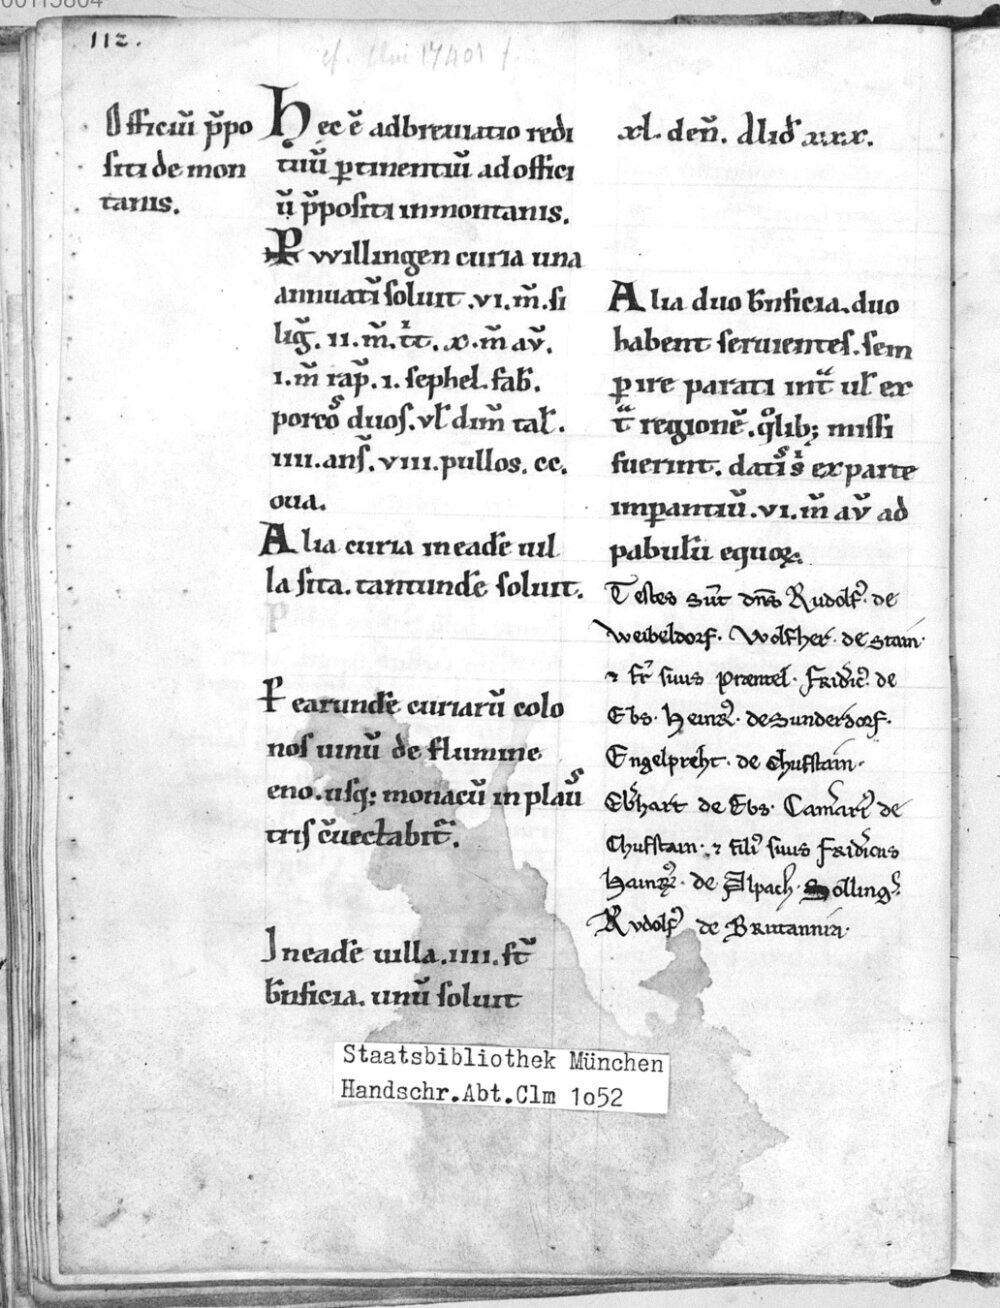 112.
cf. Clm 17401 f.
Officiū p̄po
siti de mon
tanis.
Hec ē adbreuiatio redi
tuū ꝑtinentiū ad offici
ū p̄positi in montanis.
Pwillingen curia una
annuatī soluit .vi. m̄. si
liḡ. ii. m̄. tͥt. x. m̄ av̄.
i. m̄ rap̄. i. sephel. fab̄.
porcoˢ duos. vl̄ dim̄ tal̄.
iiii. ans̄. viii. pullos. cc.
oua.
Alia curia in eadē uil
la sita. tantundē soluit.
P
Pearundē curiarū colo
nos uinū de flumine
eno. usq; monacū in plaūˢ
tris c̄uectabīt.
In eadē uilla .iiii. st̄
b̄nficia. unū soluit
xl. den̄. aliđ xxx.
Alia duo b̄nficia. duo
habent seruientes. sem
ꝑ ire parati intᷓ ul̄ ex
tᷓ regionē. qͦlib; missi
fuerint. datiˢ sͥ ex parte
imꝑantiū. vi. m̄ av̄ ad
pabulū equoꝝ.
Testes sūt dn̄s Rudolf᾽ de
Weibeldorf. Wolfher. de Stain.
⁊ fr̄ suus Prentel. Fridic᾽. de
Ebs. Heinr᾽. de Sundersdorf.
Engelpreht. de Chufstain.
Eb̄hart de Ebs. Cam̄ari᾽ de
Chufstain. ⁊ fili᾽ suus Fridicus
Hainr᾽. de Alpach. Sollinḡ.
Rvdolf᾽ de Britannia.
Staatsbibliothek München
Handschr.Abt.Clm 1o52